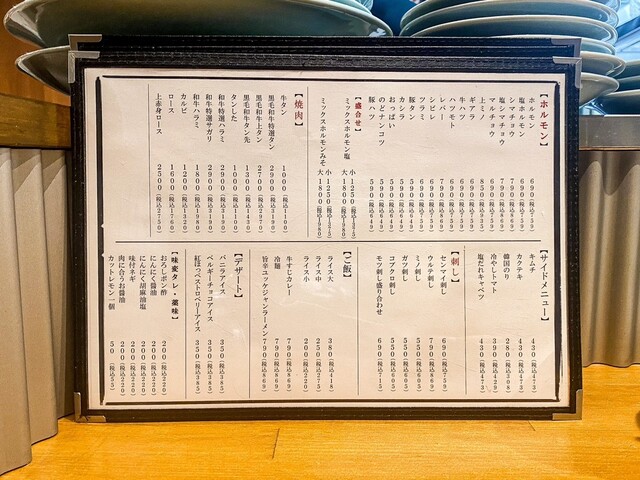 【ホルモン】
ホルモン 690(税込759)
塩ホルモン 690(税込759)
シマチョウ 790(税込869)
塩シマチョウ 790(税込869)
マルチョウ 690(税込759)
上ミノ 850(税込935)
ギアラ
牛ハツ
ハツモト
レバー 790(税込869)
シビレ 690(税込759)
ツラミ 690(税込759)
豚タン 590(税込649)
カシラ 590(税込649)
おっぱい 590(税込649)
のどナンコツ 590(税込649)
豚ハツ 590(税込649)
【盛合せ】
ミックスホルモン塩 小1250(税込1375) 大1800(税込1980)
ミックスホルモンみそ 小1250(税込1375) 大1800(税込1980)
【焼肉】
牛タン 1000(税込1100)
黒毛和牛特選タン 2900(税込3190)
黒毛和牛上タン 2700(税込2970)
黒毛和牛タン先 1300(税込1430)
タンした 1000(税込1100)
和牛特選ハラミ 2900(税込3190)
和牛特選サガリ 2900(税込3190)
和牛ハラミ 1800(税込1980)
カルビ 1200(税込1320)
ロース 1600(税込1760)
上赤身ロース 2500(税込2750)
【サイドメニュー】
キムチ 430(税込473)
カクテキ 430(税込473)
韓国のり 280(税込308)
冷やしトマト 390(税込429)
塩だれキャベツ 430(税込473)
【刺し】
センマイ刺し 690(税込759)
ウルテ刺し 790(税込869)
ミノ刺し 550(税込605)
ガツ刺し 550(税込605)
コブクロ刺し 550(税込605)
モツ刺し盛り合わせ 690(税込715)
【ご飯】
ライス大 380(税込418)
ライス中 250(税込275)
ライス小 200(税込220)
牛すじカレー 790(税込869)
冷麺 790(税込869)
旨辛ユッケジャンラーメン 790(税込869)
【デザート】
バニラアイス 350(税込385)
ベルギーチョコアイス 350(税込385)
紅ほっぺストロベリーアイス 350(税込385)
【味変タレ・薬味】
おろしポン酢 200(税込220)
にんにく醤油 200(税込220)
にんにく胡麻油塩 200(税込220)
味付ネギ 200(税込220)
肉に合うお醤油 200(税込220)
カットレモン一個 50(税込55)